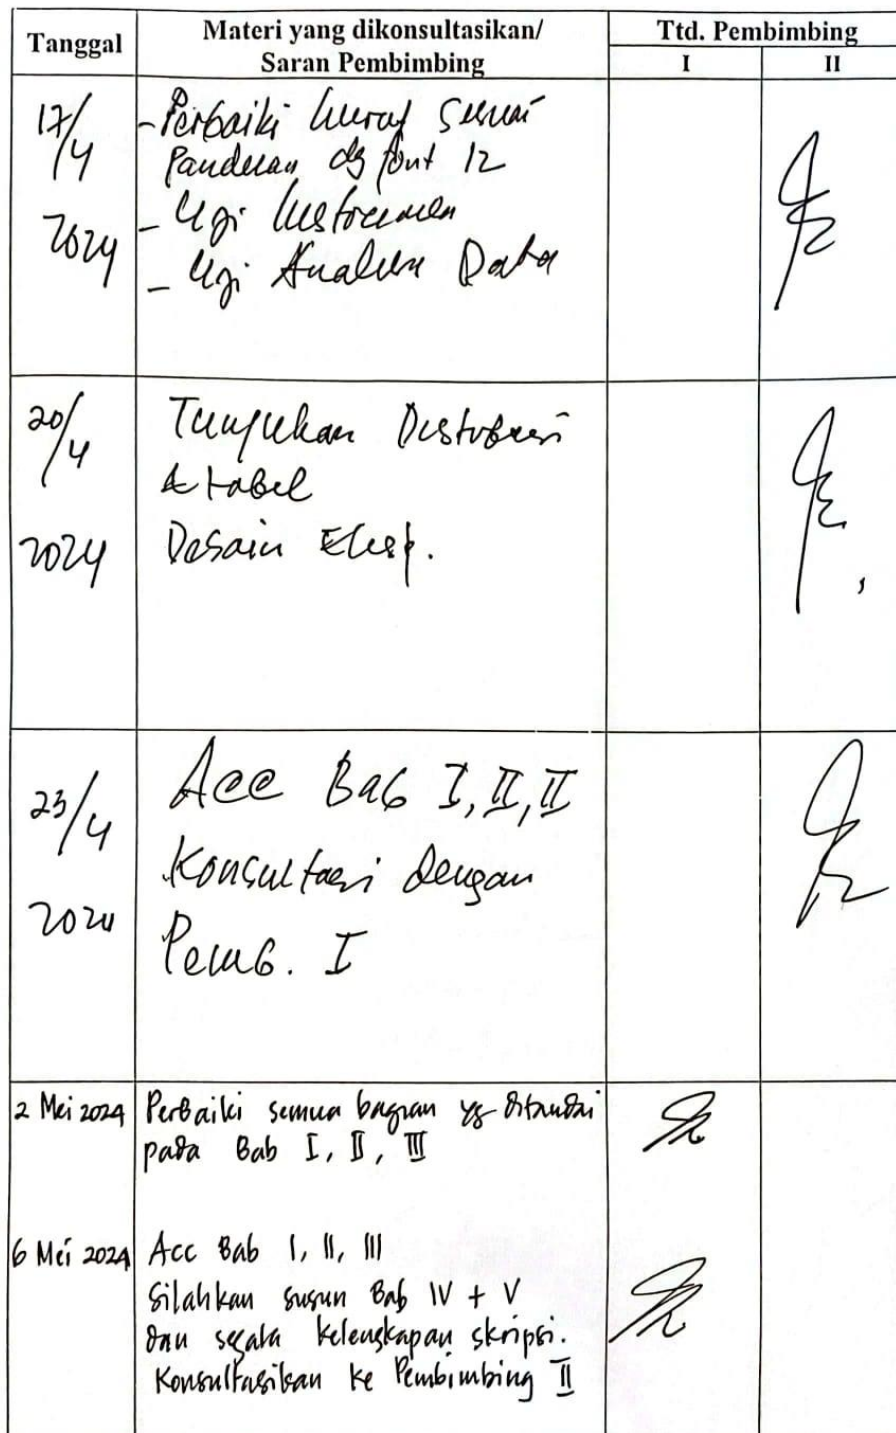 Tanggal Materi yang dikonsultasikan/ Ttd. Pembimbing
Saran Pembimbing I II
17/4 -Perbaiki huruf sesuai
Panduan dg font 12
2024 - Uji Instrumen
- Uji Analisa Data
20/4 Tunjukan Distribusi
& tabel
2024 Desain Eksp.
23/4 Acc Bab I, II, II
Konsultasi dengan
2024 Pemb. I
2 Mei 2024 Perbaiki semua bagian yg ditandai
pada Bab I, II, III
6 Mei 2024 Acc Bab I, II, III
Silahkan susun Bab IV + V
dan segala kelengkapan skripsi.
Konsultasikan ke Pembimbing II